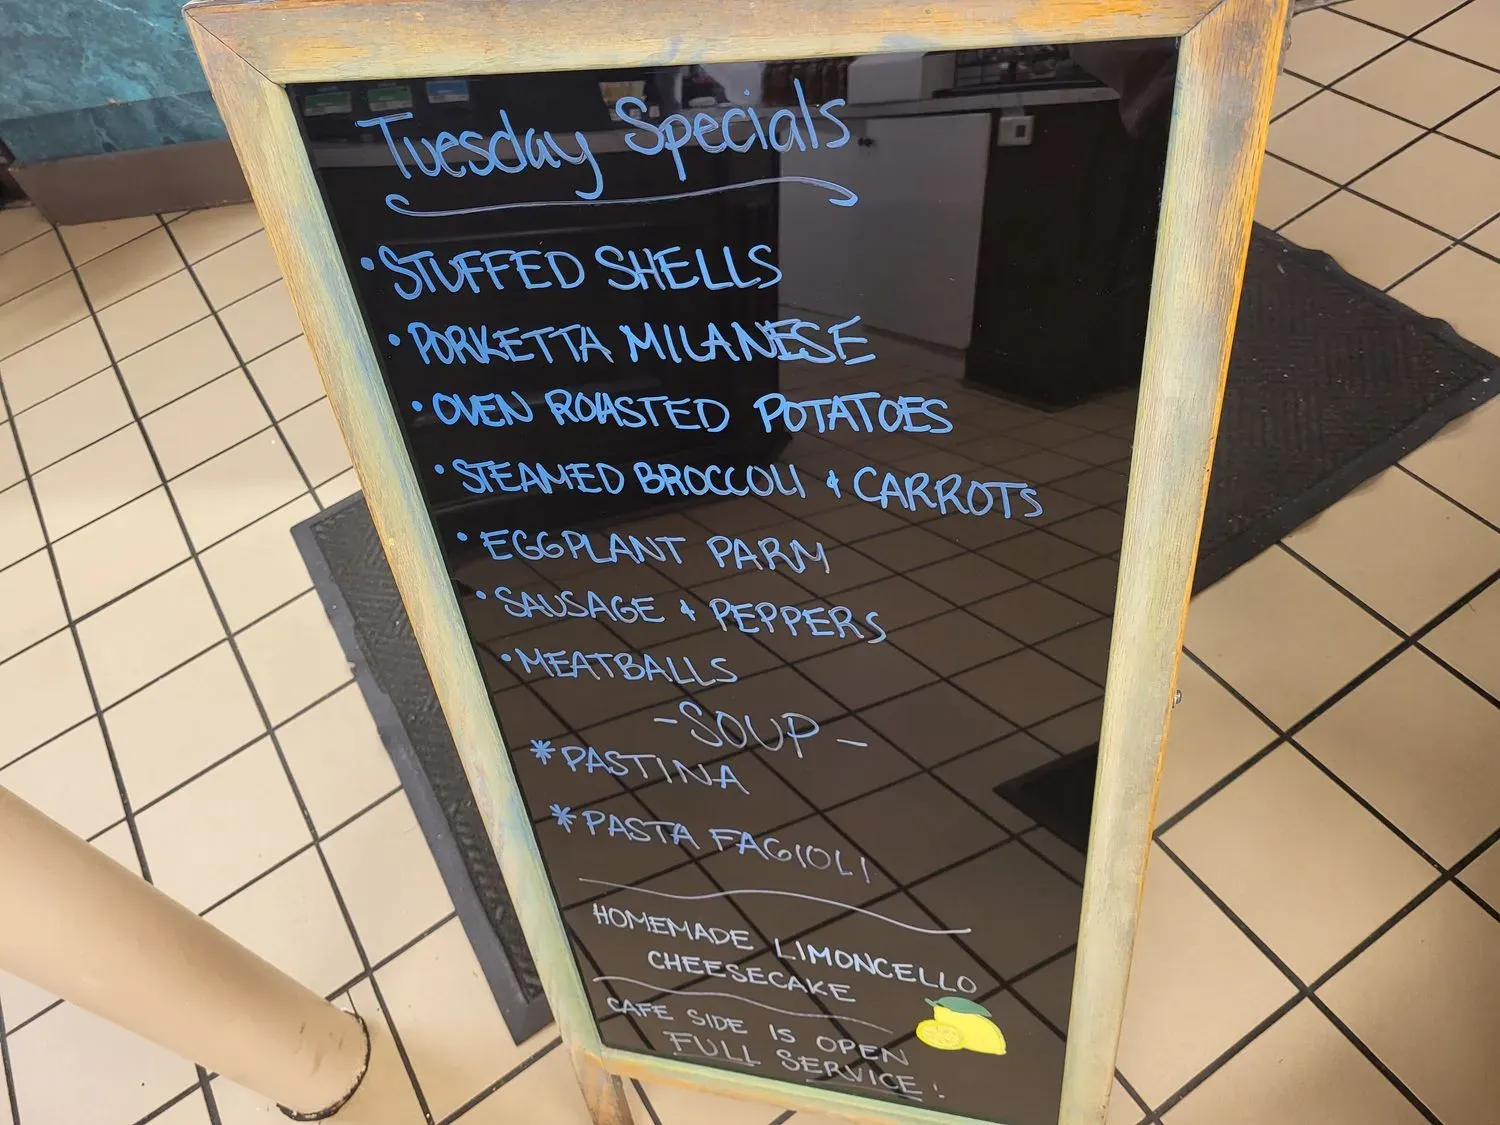 Tuesday Specials
• STUFFED SHELLS
• PORKETTA MILANESE
• OVEN ROASTED POTATOES
• STEAMED BROCCOLI & CARROTS
• EGGPLANT PARM
• SAUSAGE & PEPPERS
• MEATBALLS
- SOUP -
* PASTINA
* PASTA FAGIOLI
HOMEMADE LIMONCELLO
CHEESECAKE
CAFE SIDE IS OPEN
FULL SERVICE!